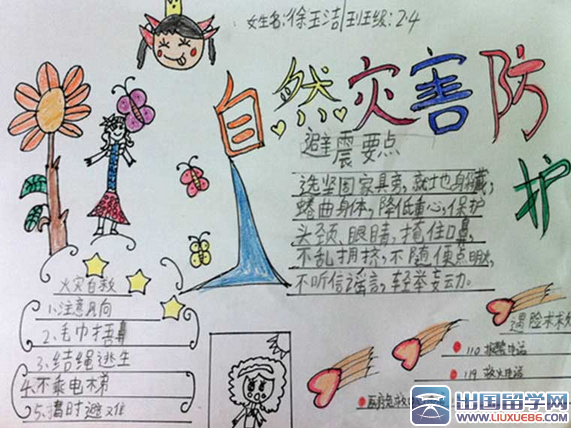 姓名:徐玉洁 班级:2.4
自然灾害防护
避震要点
选坚固家具旁,就地身藏,
蜷曲身体,降低重心,保护
头颈、眼睛,掩住口鼻,
不乱拥挤,不随便点明火,
不听信谣言,轻举妄动。
火灾自救
1.注意风向
2.毛巾捂鼻
3.结绳逃生
4.不乘电梯
5.暂时避难
遇险
110 报警电话
119 救火电话
出国留学网
WWW.LIUXUE86.COM